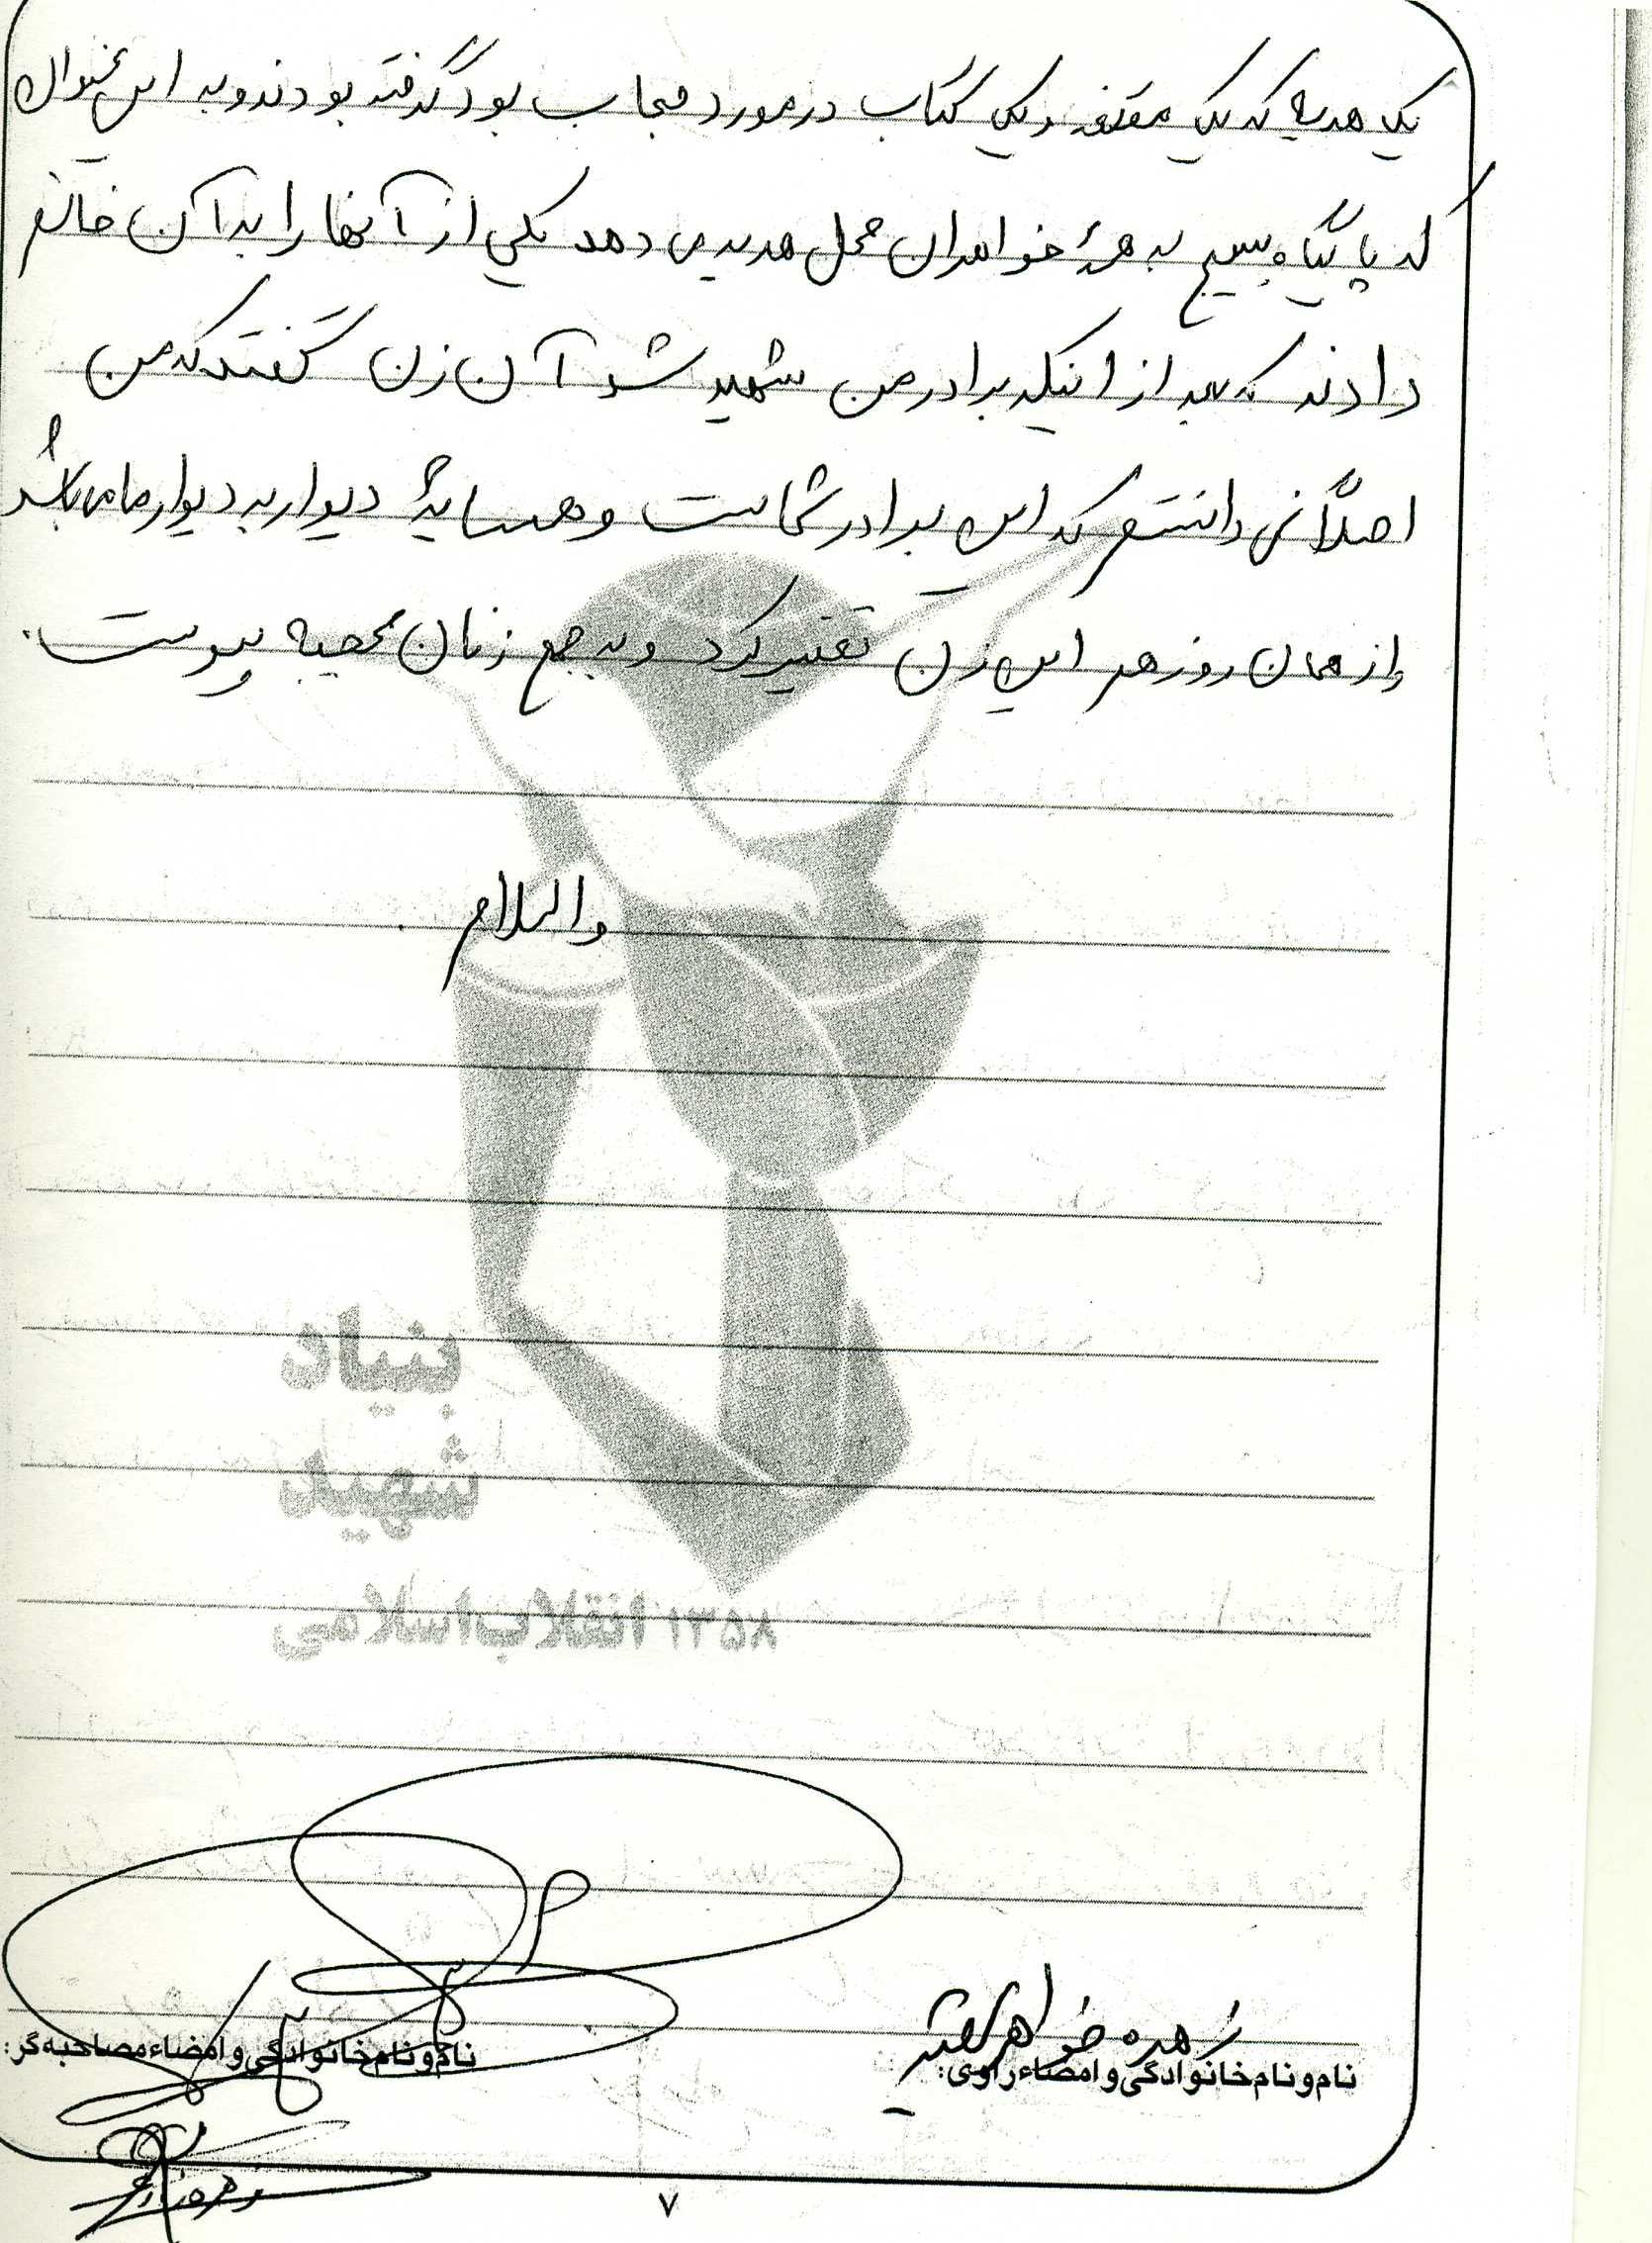 یک هدیه که یک مقنعه و یک کتاب در مورد حجاب بود گرفته بودند و به این عنوان
که پایگاه بسیج به همهٔ خواهران محل هدیه می دهد یکی از آنها را به آن خانم
دادند که بعد از اینکه برادر من شهید شد آن زن گفتند که من
اصلاً نمی دانستم که این برادر شماست و همسایهٔ دیوار به دیوار ما می باشد
واز همان روز هم این زن تغییر کرد و به جمع زنان محجبه پیوست.
والسلام .
بنیاد
شهید
۱۳۵۸ انقلاب اسلامی
نام و نام خانوادگی و امضاء راوی:
نام و نام خانوادگی و امضاء مصاحبه گر:
۷